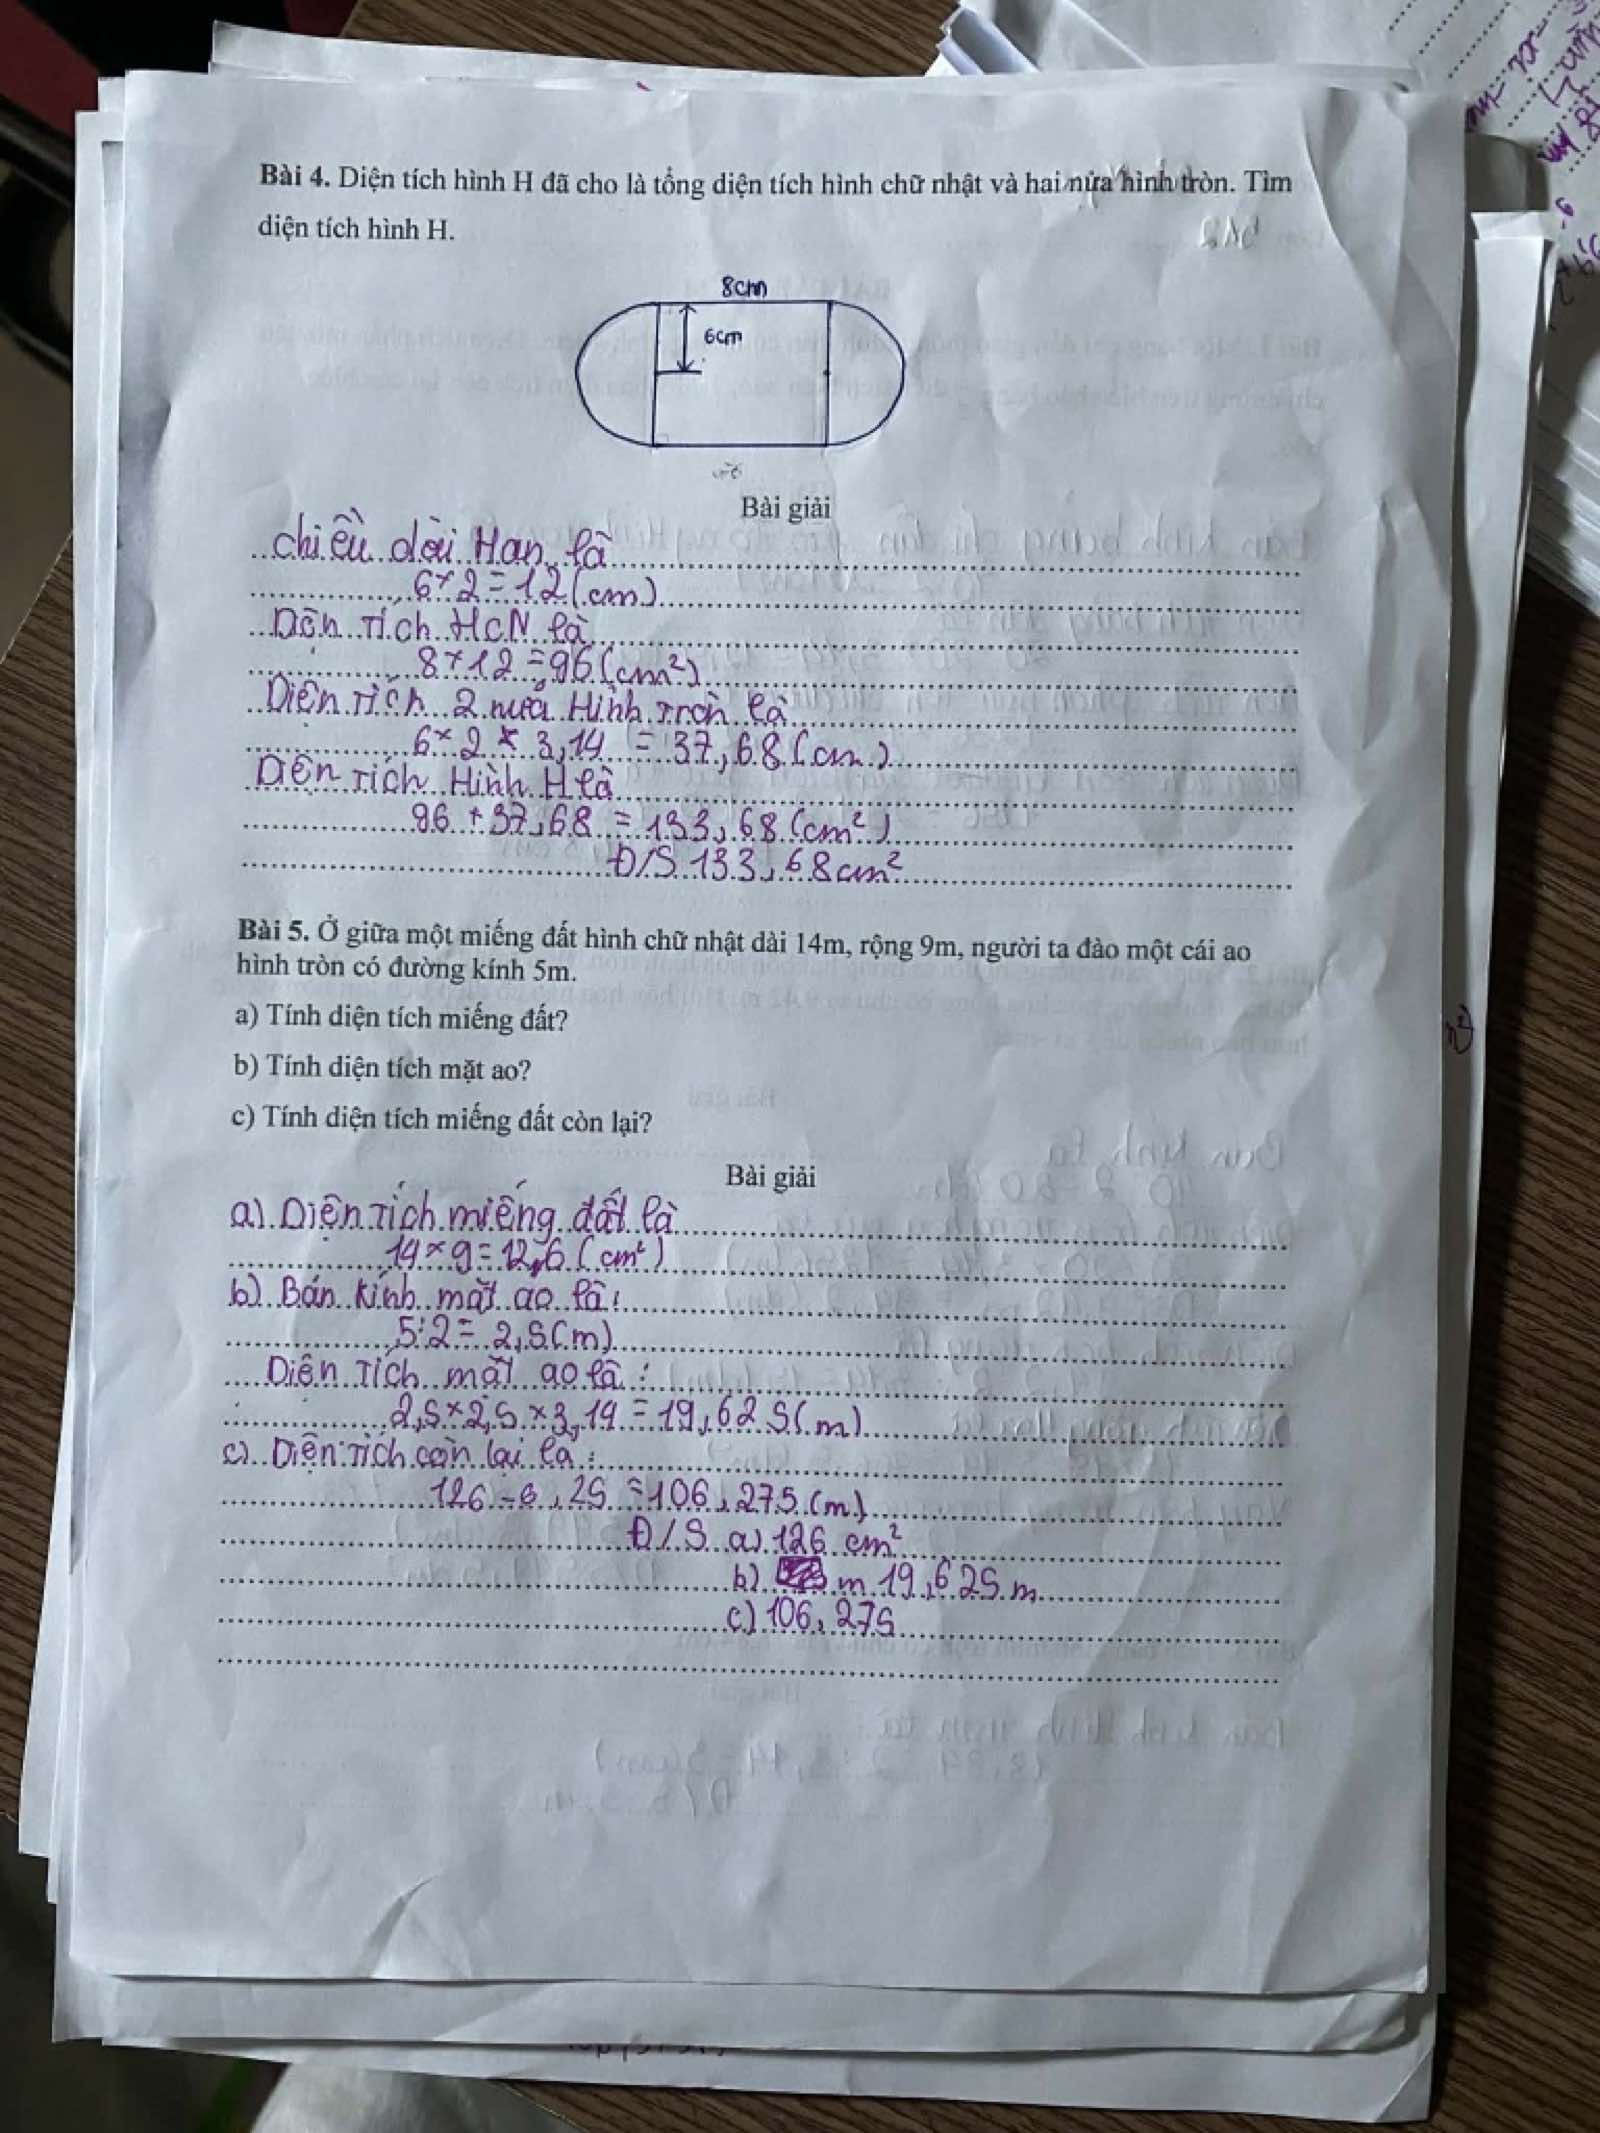 Bài 4. Diện tích hình H đã cho là tổng diện tích hình chữ nhật và hai nửa hình tròn. Tìm
diện tích hình H.
8cm
6cm
Bài giải
chiều dài Han là
6 × 2 = 12 (cm)
Diện tích HCN là
8 × 12 = 96 (cm²)
Diện tích 2 nửa Hình tròn là
6 × 2 × 3,14 = 37,68 (cm)
Diện tích Hình H là
96 + 37,68 = 133,68 (cm²)
Đ/S 133,68 cm²
Bài 5. Ở giữa một miếng đất hình chữ nhật dài 14m, rộng 9m, người ta đào một cái ao
hình tròn có đường kính 5m.
a) Tính diện tích miếng đất?
b) Tính diện tích mặt ao?
c) Tính diện tích miếng đất còn lại?
Bài giải
a) Diện tích miếng đất là
14 × 9 = 126 (cm²)
b) Bán kính mặt ao là:
5 : 2 = 2,5 (m)
Diện tích mặt ao là:
2,5 × 2,5 × 3,14 = 19,625 (m)
c) Diện tích còn lại là:
126 - 6,25 = 106,275 (m)
Đ/S a) 126 cm²
b) m 19,625 m
c) 106,275